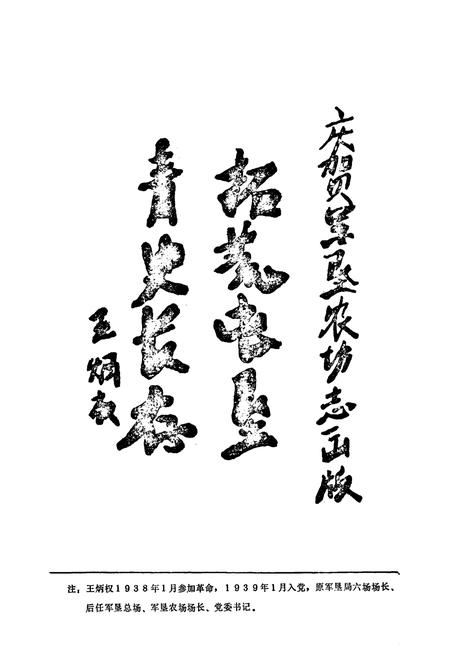 庆贺军垦农场志出版
拓荒屯垦
青史长存
王炳权
注：王炳权１９３８年１月参加革命，１９３９年１月入党，原军垦局六场场长、
后任军垦总场、军垦农场场长、党委书记。